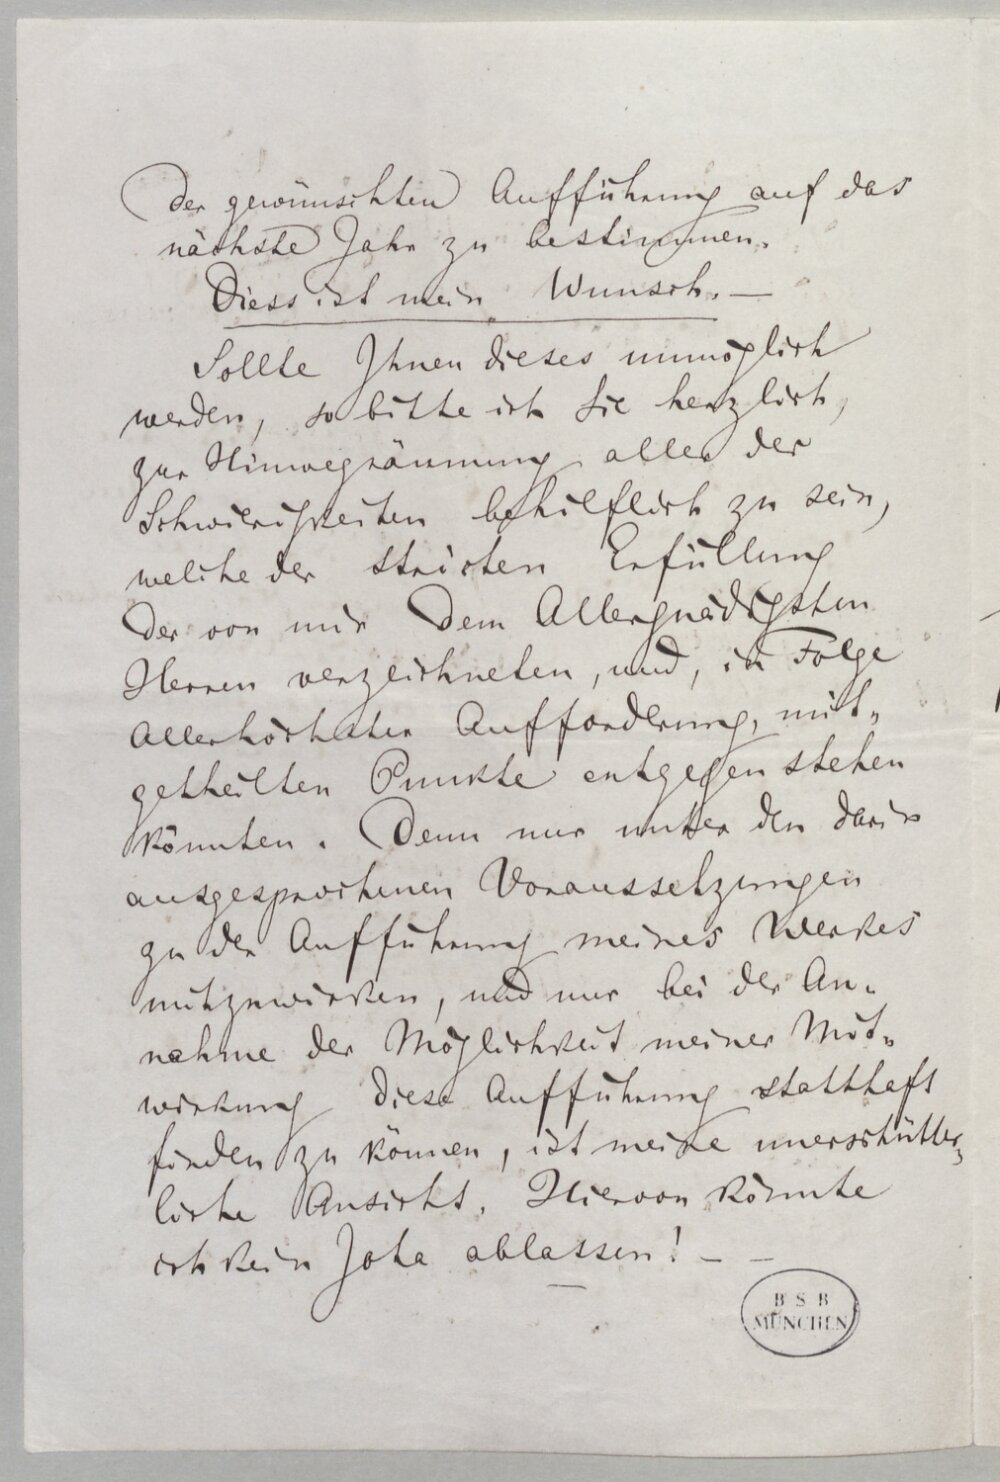 der gewünschten Aufführung auf das
nächste Jahr zu bestimmen.
Diess ist mein Wunsch. —
Sollte Ihnen dieses unmöglich
werden, so bitte ich Sie herzlich,
zur Hinwegräumung aller der
Schwierigkeiten behilflich zu sein,
welche der stricten Erfüllung
der von mir dem Allergnädigsten
Herren verzeichneten, und, in Folge
Allerhöchster Aufforderung, mit-
getheilten Punkte entgegen stehen
könnten. Denn nur unter den darin
ausgesprochenen Voraussetzungen
zu der Aufführung meines Werkes
mitzuwirken, und nur bei der An-
nahme der Möglichkeit meiner Mit-
wirkung diese Aufführung statthaft
finden zu können, ist meine unerschütter-
liche Ansicht. Hiervon könnte
ich kein Jota ablassen! — —
B S B
MÜNCHEN